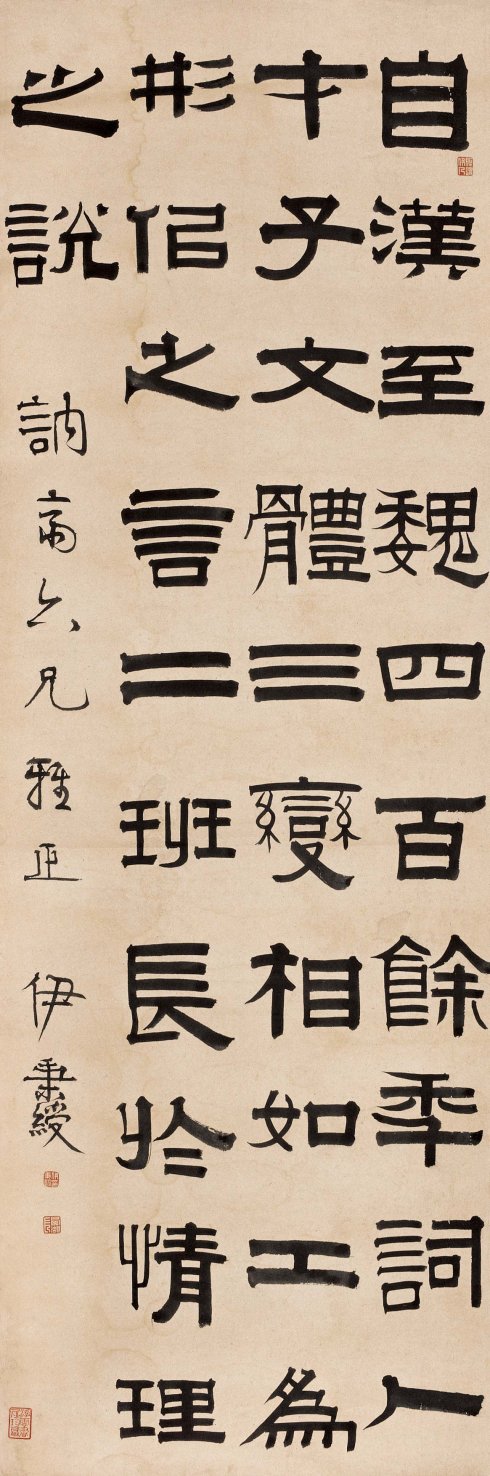 自漢至魏四百餘秊詞人
才子文體三變相如工為
形佀之言二班長於情理
之說 訥斋六兄雅正 伊秉綬